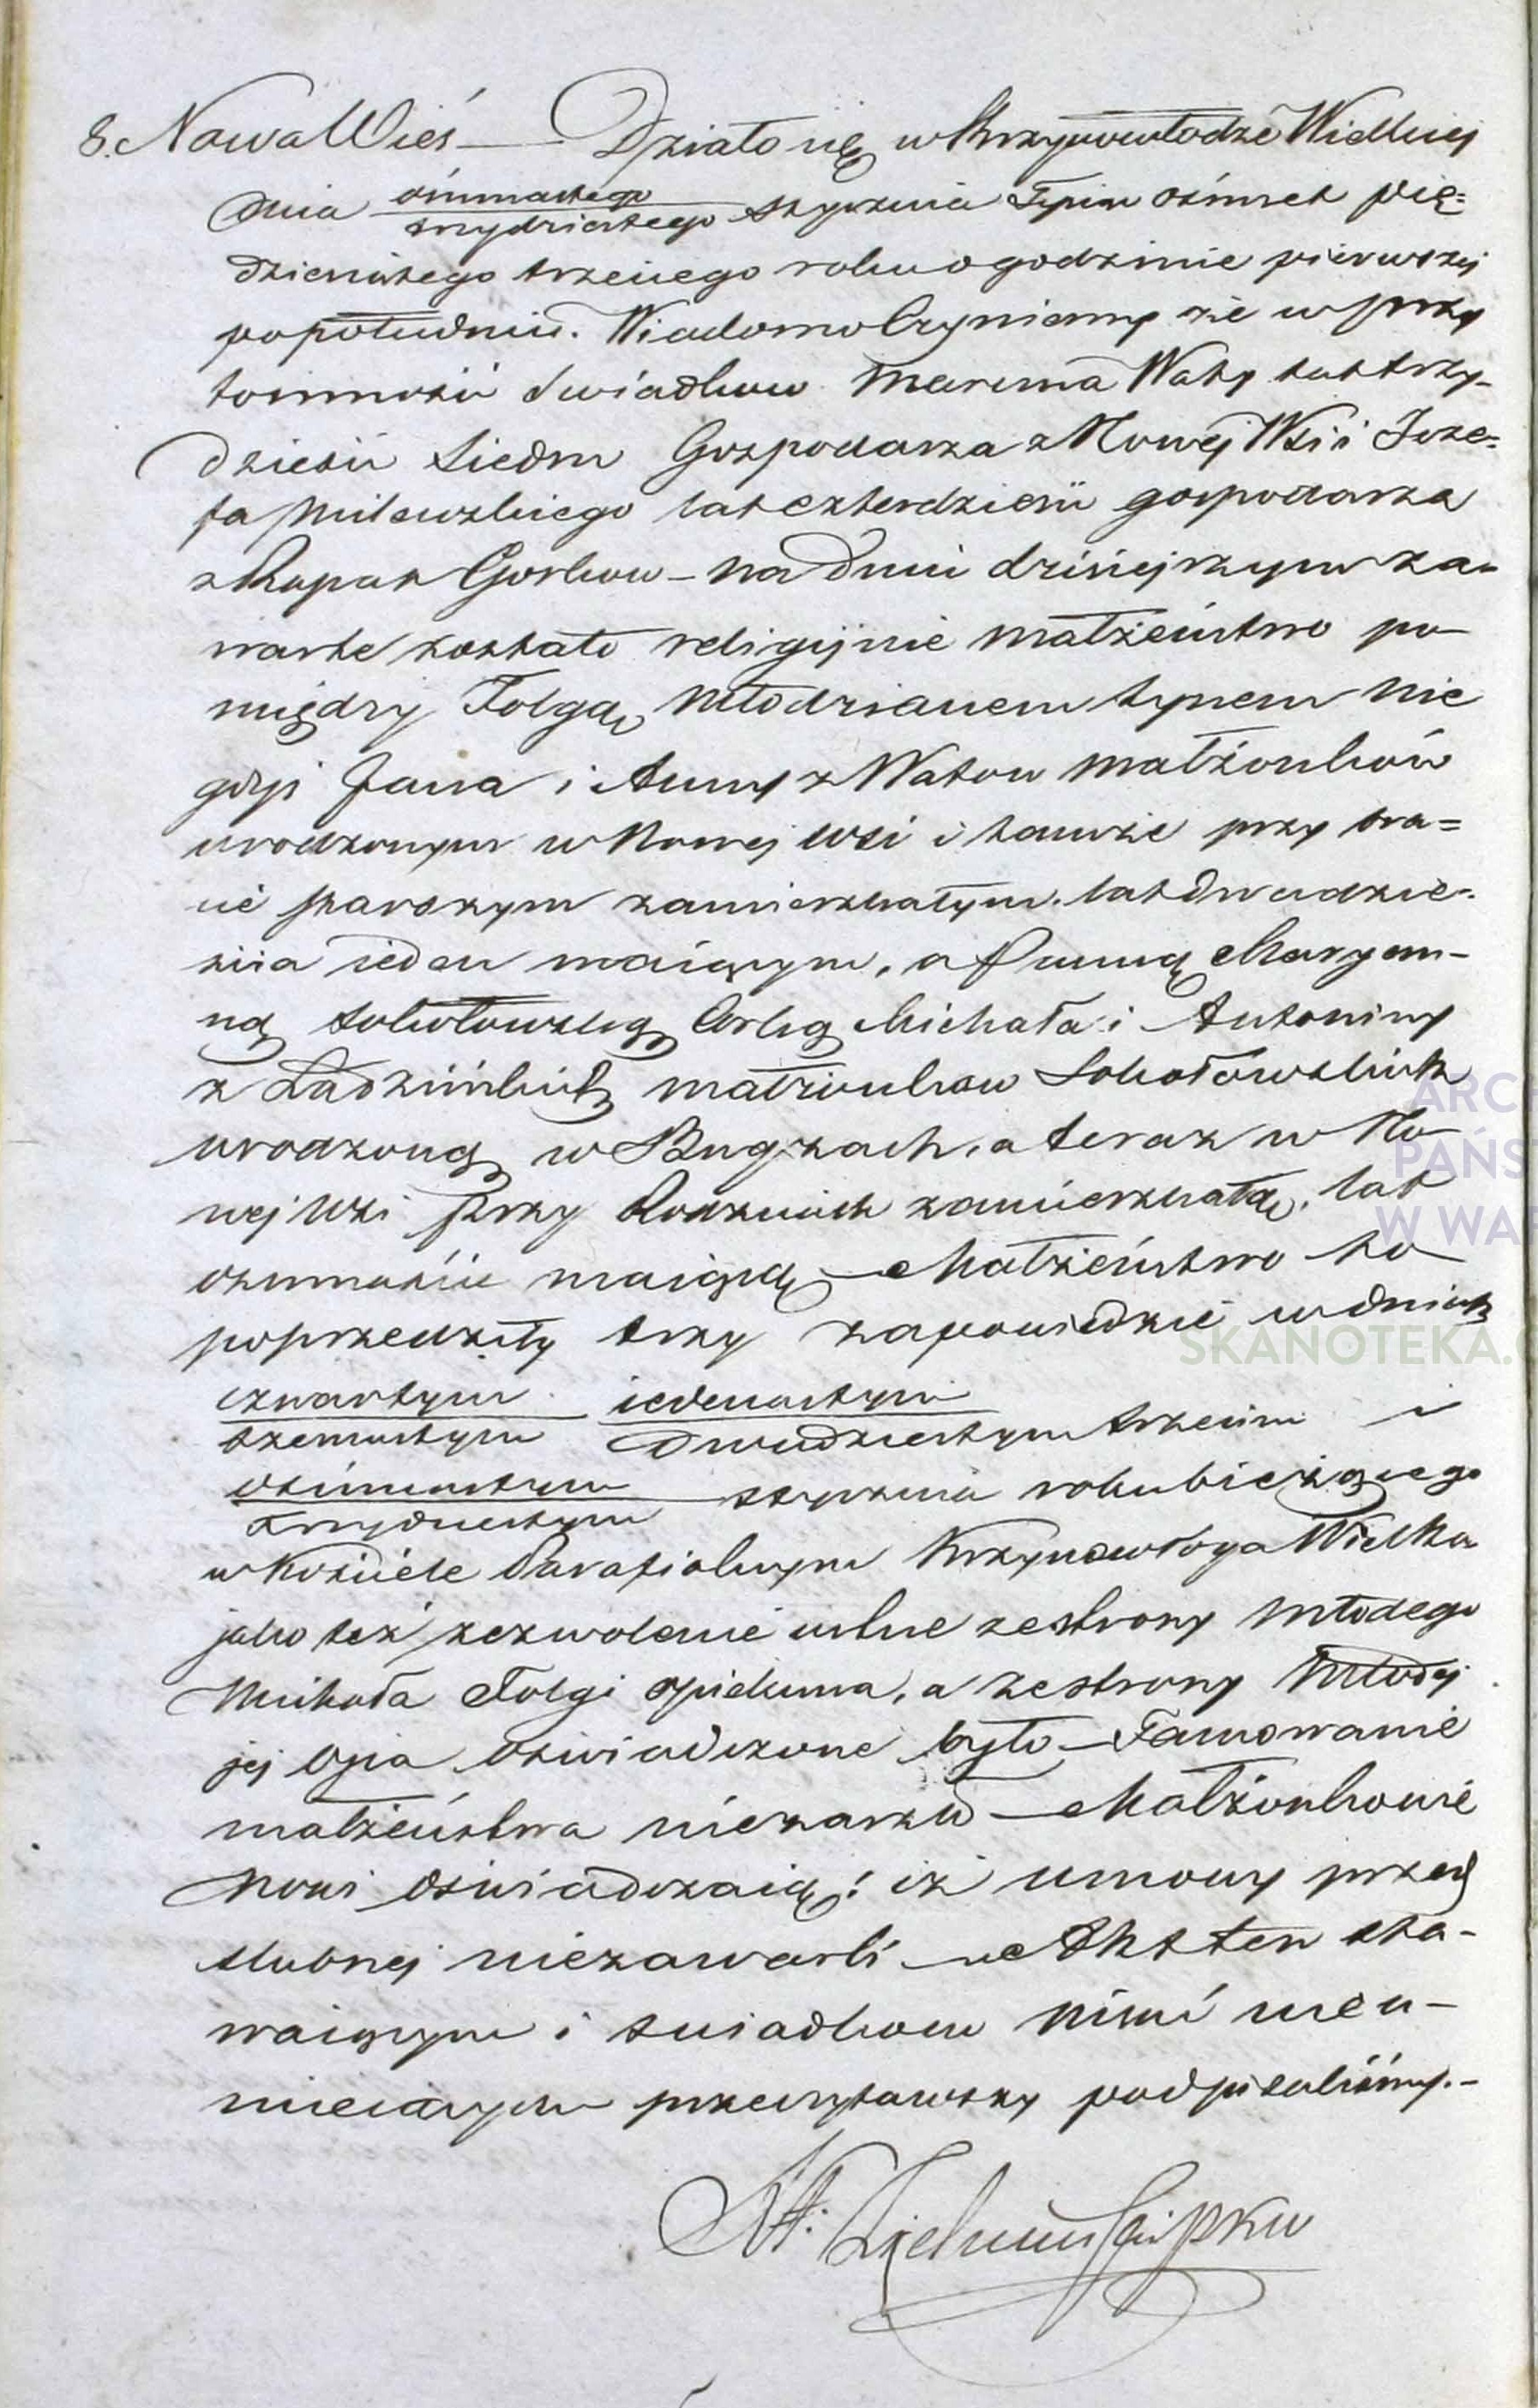 8. Nowa Wieś — Działo się w Krzynowłodze Wielkiej
dnia ośmnastego
trzydziestego Stycznia Tysiąc ośmset pię=
dziesiątego trzeciego roku o godzinie pierwszej
popołudniu. Wiadomo Czyniemy że w przy
tomności Świadków Marcina Waty lat trzy-
dzieści Siedm Gospodarza z Nowej Wsi i Joze=
fa Milewskiego lat czterdzieści gospodarza
z Rapat Gorkow — na dniu dzisiejszym za-
warte zostało religijnie małżeństwo po
między Folgą, Młodzianem synem nie
gdyś Jana i Anny z Watow małżonków
urodzonym w Nowej Wsi i tamże przy bra=
cie starszym zamieszkałym. lat dwadzie-
ścia ieden maiącym, a Panną Maryan-
ną Sokołowską Córką Michała i Antoniny
z małżonkow Sokołowskich
urodzoną w a teraz w No
wej Wsi przy Rodzicach zamieszkałą, lat
ośmnaście maiącą — Małżeństwo to
poprzedziły trzy zapowiedzie w dniach
czwartym iedenastym
szesnastym dwudziestym trzecim i
ośmnastym
trzydziestym Stycznia roku bieżącego
w Kościele Parafialnym Krzynowłoga Wielka
jako też zezwolenie ustne ze strony Młodego
Michała Folgi opiekuna, a ze strony Młodej
jej Ojca oświadczone było — Tamowanie
małżeństwa niezaszło — Małżonkowie
Nowi oświadczaią: iż umowy przed
ślubnej niezawarli — Akt ten sta-
waiącym i świadkom nieu-
mieiącym przeczytawszy podpisaliśmy. —